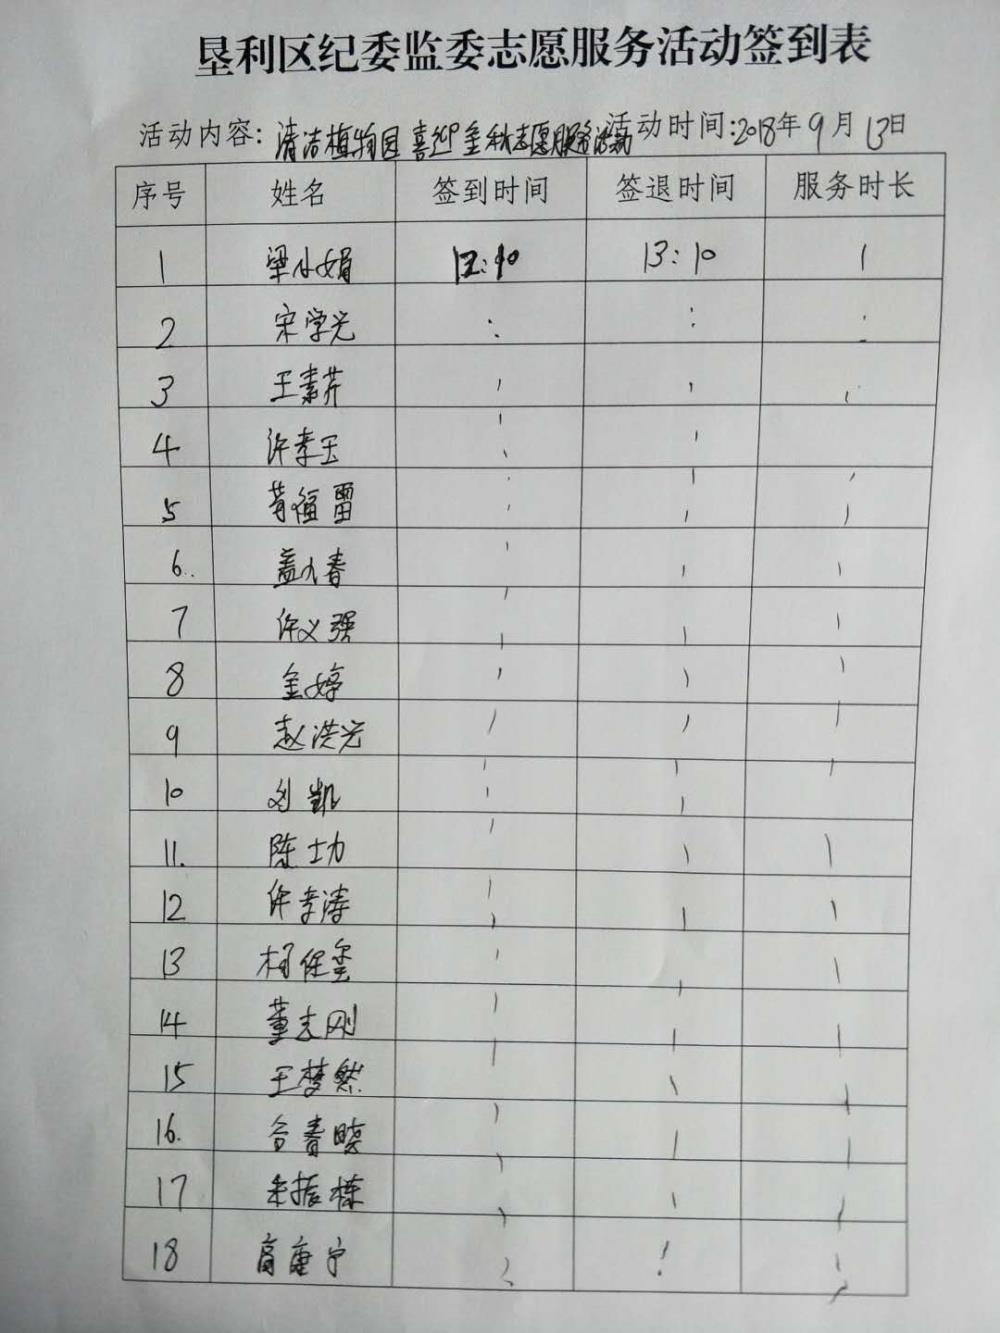 垦利区纪委监委志愿服务活动签到表
活动内容: 清洁植物园 喜迎金秋志愿服务活动 活动时间:2018年9月13日
序号 姓名 签到时间 签退时间 服务时长
1 梁小娟 12:10 13:10 1
2 宋学光
3 王素芹
4 许孝玉
5 苟福雷
6. 盖人春
7 许义强
8 金婷
9 赵洪光
10 刘凯
11. 陈士功
12 许孝涛
13 杨保玺
14 董志刚
15 王梦然
16. 台青晓
17 宋振栋
18 高康宁